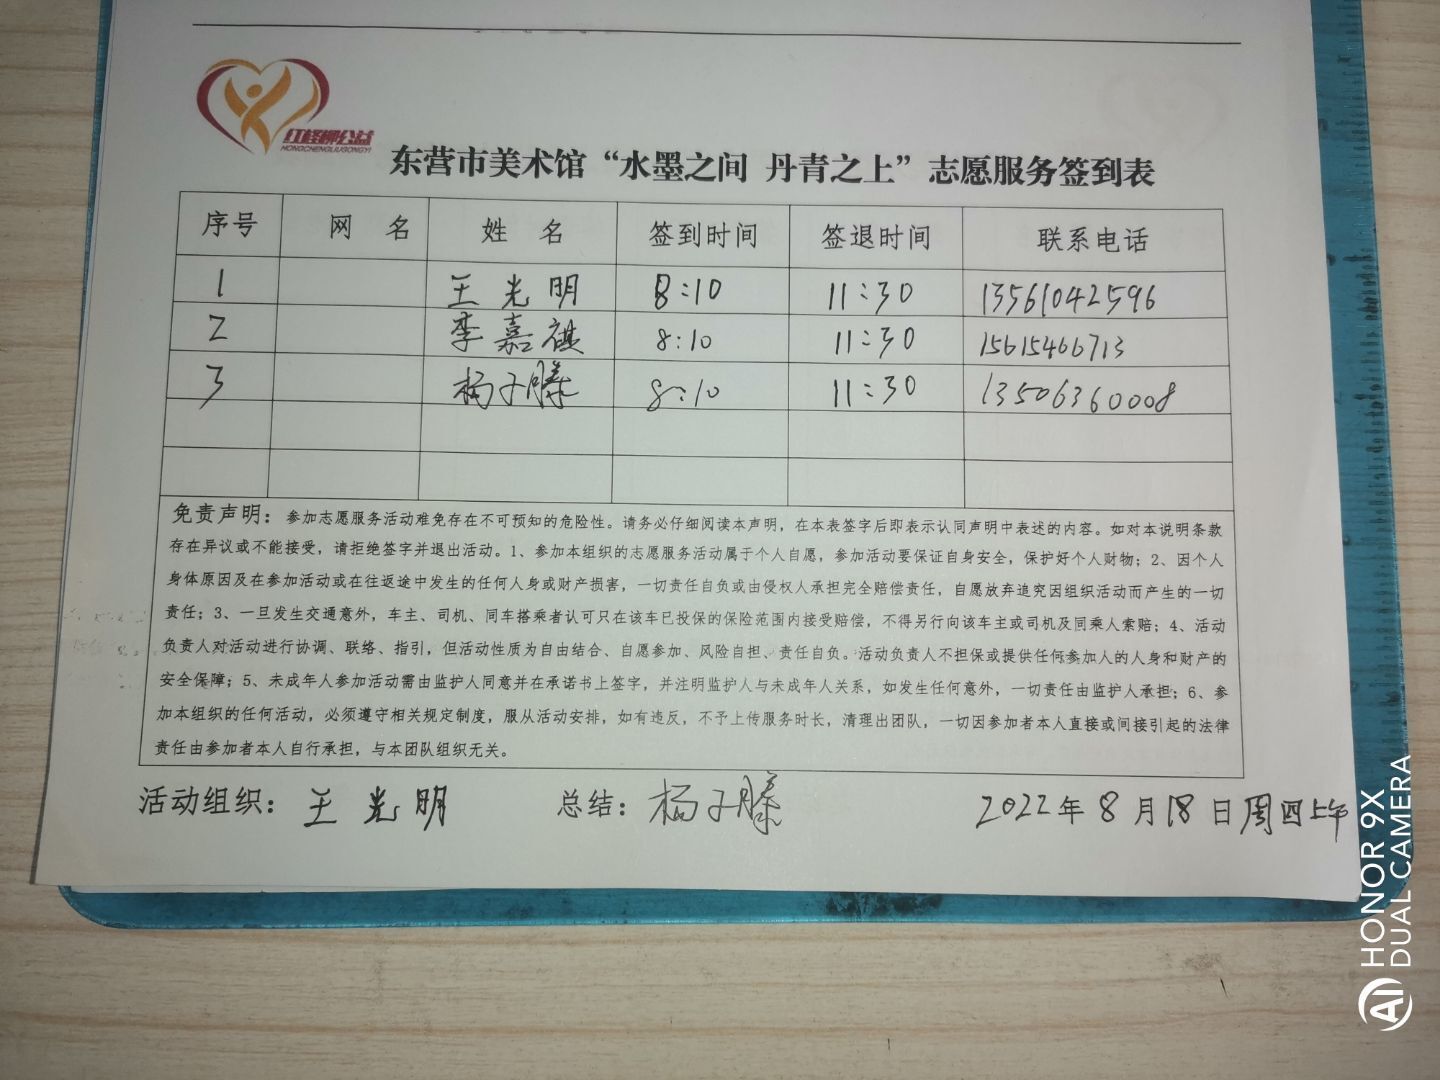 红柽柳公益
HONGCHENGLIUGONGYI
东营市美术馆“水墨之间 丹青之上”志愿服务签到表
序号 网 名 姓 名 签到时间 签退时间 联系电话
1 王光明 8:10 11:30 13561042596
2 李嘉祺 8:10 11:30 15615466713
3 杨子滕 8:10 11:30 13506360008
免责声明：参加志愿服务活动难免存在不可预知的危险性。请务必仔细阅读本声明，在本表签字后即表示认同声明中表述的内容。如对本说明条款
存在异议或不能接受，请拒绝签字并退出活动。1、参加本组织的志愿服务活动属于个人自愿，参加活动要保证自身安全，保护好个人财物；2、因个人
身体原因及在参加活动或在往返途中发生的任何人身或财产损害，一切责任自负或由侵权人承担完全赔偿责任，自愿放弃追究因组织活动而产生的一切
责任；3、一旦发生交通意外，车主、司机、同车搭乘者认可只在该车已投保的保险范围内接受赔偿，不得另行向该车主或司机及同乘人索赔；4、活动
负责人对活动进行协调、联络、指引，但活动性质为自由结合、自愿参加、风险自担、责任自负。活动负责人不担保或提供任何参加人的人身和财产的
安全保障；5、未成年人参加活动需由监护人同意并在承诺书上签字，并注明监护人与未成年人关系，如发生任何意外，一切责任由监护人承担；6、参
加本组织的任何活动，必须遵守相关规定制度，服从活动安排，如有违反，不予上传服务时长，清理出团队，一切因参加者本人直接或间接引起的法律
责任由参加者本人自行承担，与本团队组织无关。
活动组织：王光明 总结：杨子滕 2022年8月18日周四上午
HONOR 9X
DUAL CAMERA
AI